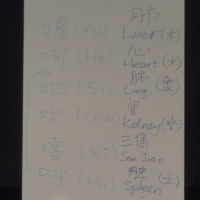 嘘(Xu) 肝 Liver(木)
呵(He) 心 Heart(火)
呬(Si) 肺 Lung(金)
吹(Chui) 肾 Kidney(水)
嘻(Xi) 三焦 San Jiao
呼(Hu) 脾 Spleen(土)